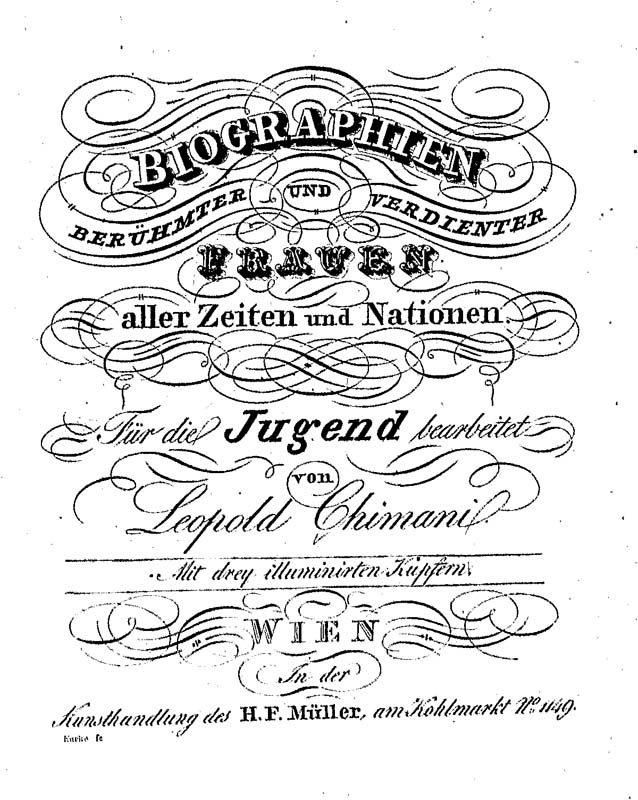 BIOGRAPHIEN
BERÜHMTER UND VERDIENTER
FRAUEN
aller Zeiten und Nationen.
Für die Jugend bearbeitet
von
Leopold Chimani
Mit drey illuminirten Kupfern.
WIEN
In der
Kunsthandlung des H. F. Müller, am Kohlmarkt No. 1149.